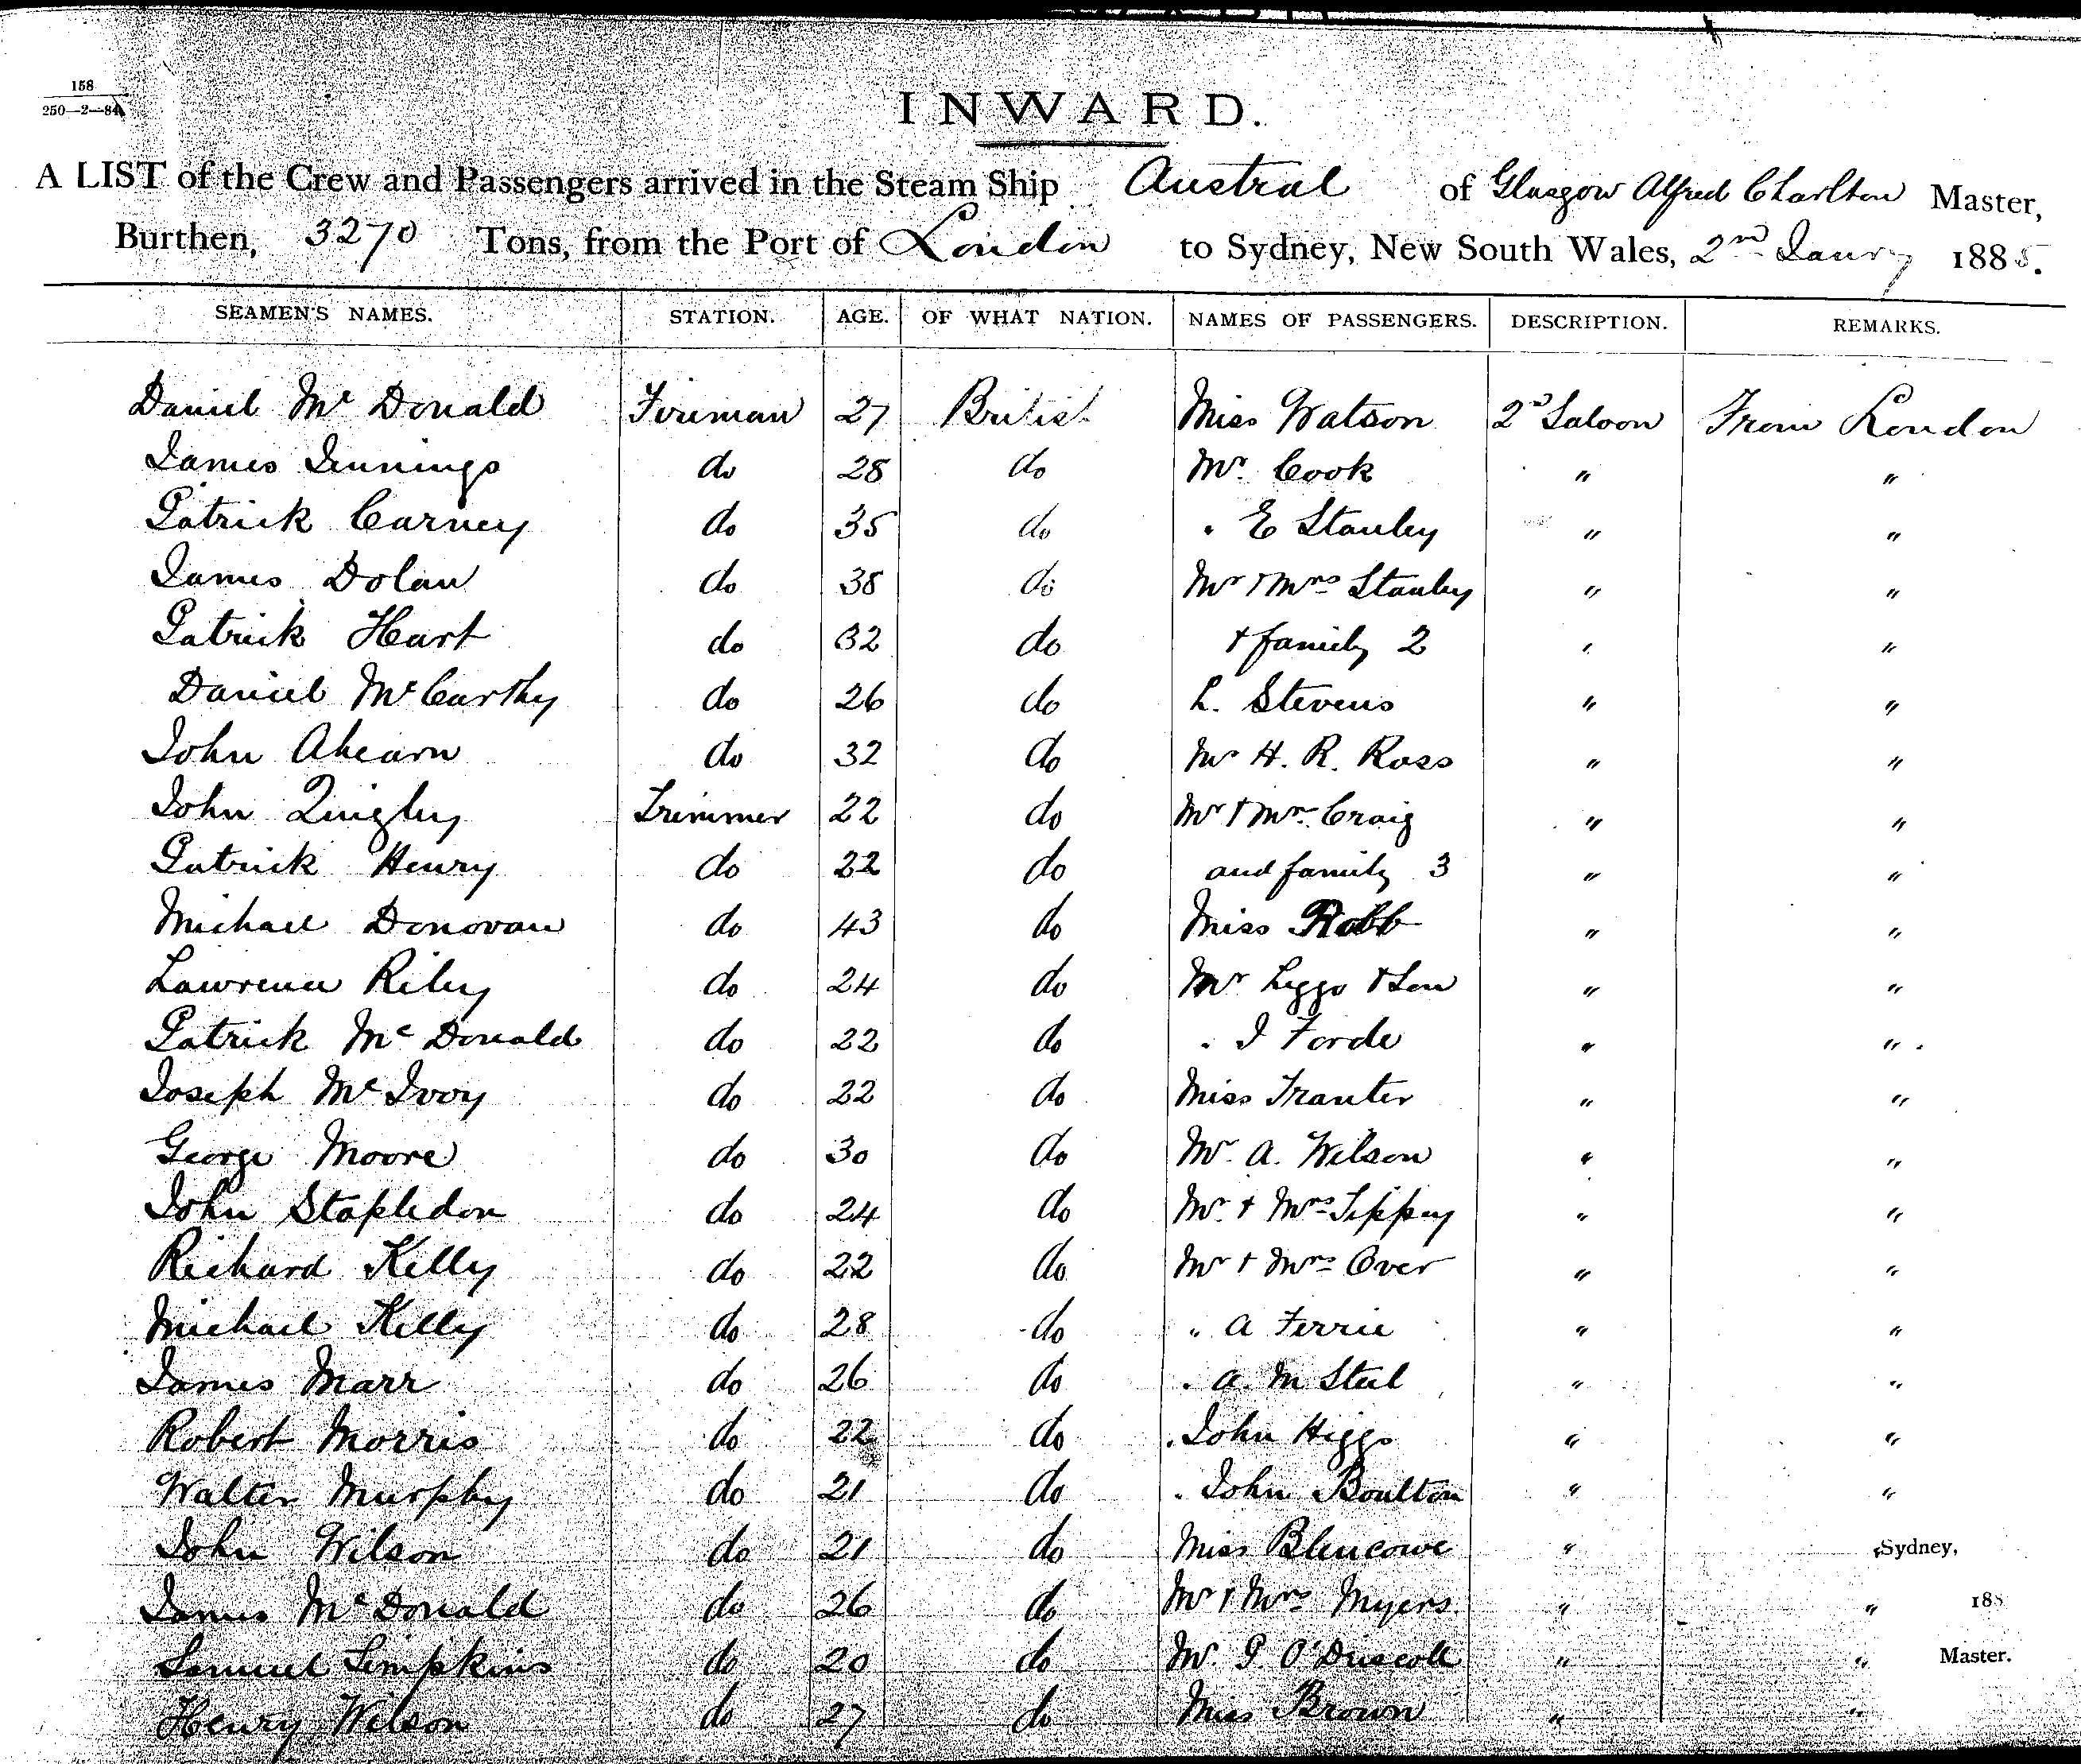 158
250—2—84
INWARD.
A LIST of the Crew and Passengers arrived in the Steam Ship Austral of Glasgow Alfred Charlton Master,
Burthen, 3270 Tons, from the Port of London to Sydney, New South Wales, 2nd Janry 1885.
SEAMEN'S NAMES. STATION. AGE. OF WHAT NATION. NAMES OF PASSENGERS. DESCRIPTION. REMARKS.
Daniel Mc Donald Fireman 27 British Miss Watson 2d Saloon From London
James Jennings do 28 do Mr Cook " "
Patrick Carney do 35 do " E Stanley " "
James Dolan do 38 do Mr & Mrs Stanley " "
Patrick Hart do 32 do & family 2 " "
Daniel McCarthy do 26 do L. Stevens " "
John Ahearn do 32 do Mr H. R. Ross " "
John Quigley Trimmer 22 do Mr & Mrs Craig " "
Patrick Henry do 22 do and family 3 " "
Michael Donovan do 43 do Miss Robb " "
Lawrence Riley do 24 do Mr Leggo & Son " "
Patrick Mc Donald do 22 do " J Forde " "
Joseph Mc Ivoy do 22 do Miss Tranter " "
George Moore do 30 do Mr A. Wilson " "
John Stapledon do 24 do Mr & Mrs Tippey " "
Richard Kelly do 22 do Mr & Mrs Over " "
Michael Kelly do 28 do " A Ferrie " "
James Marr do 26 do " A. M Steel " "
Robert Morris do 22 do " John Higgs " "
Walter Murphy do 21 do " John Boulton " "
John Wilson do 21 do Miss Blencowe " " Sydney,
James McDonald do 26 do Mr & Mrs Myers " " 188
Samuel Simpkins do 20 do Mr P O'Driscoll " " Master.
Henry Wilson do 27 do Miss Brown " "